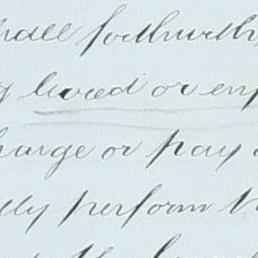 shall forthwith
levied or en
harge or pay
lly perform th